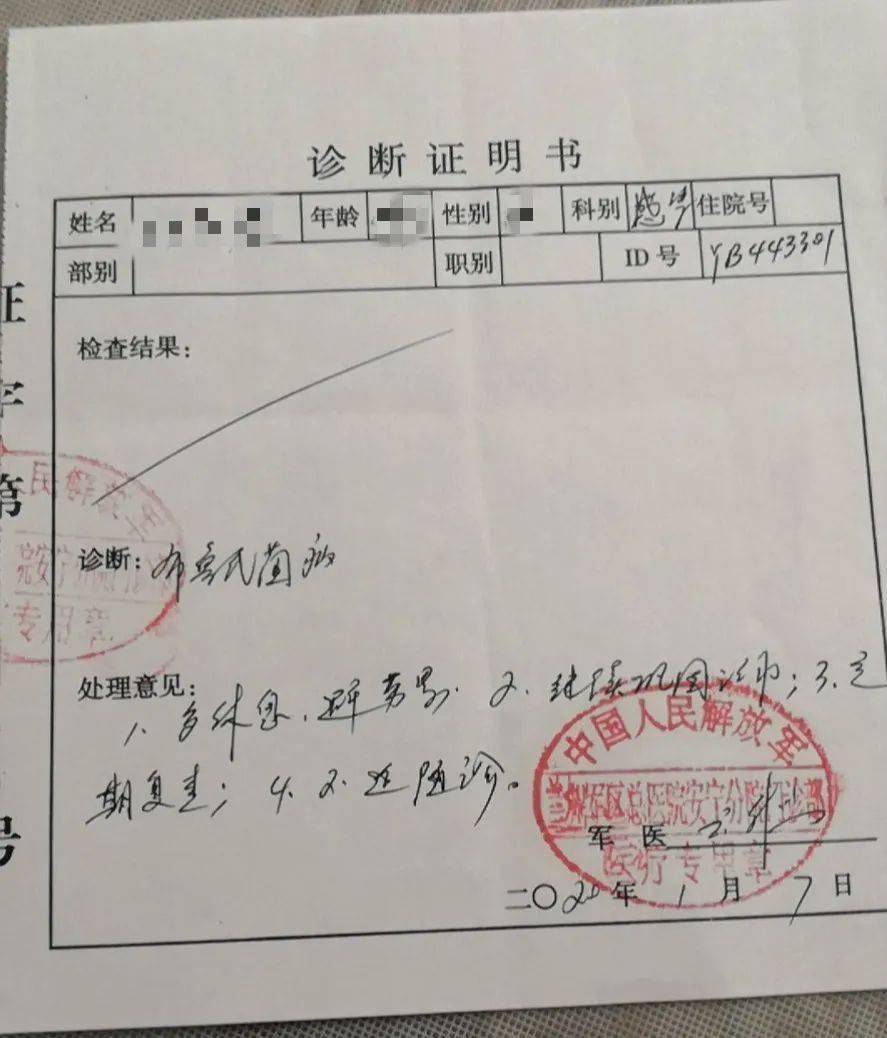 诊断证明书
姓名 年龄 性别 科别 感染 住院号
部别 职别 ID号 YB443301
检查结果:
诊断: 布鲁氏菌病
处理意见:
1、多休息、避免劳累、2、继续巩固治疗;3、定
期复查;4、不适随诊。
中国人民解放军
区总医院安宁分院门诊部
医疗专用章
军医
二〇20年1月7日
证字第
号
民解放军
专用章